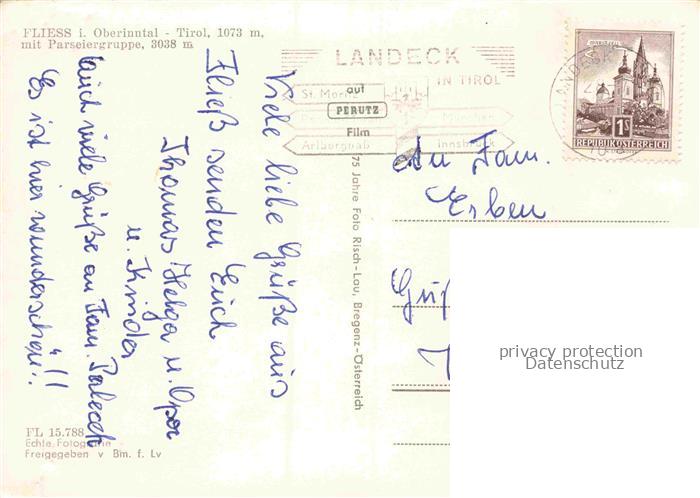 FLIESS i. Oberinntal - Tirol, 1073 m,
mit Parseiergruppe, 3038 m
LANDECK
IN TIROL
St. Moritz
auf
PERUTZ
Film
München
Arlbergpaß
Innsbruck
LANDECK
MARIAZELL
1S
REPUBLIK ÖSTERREICH
Viele liebe Grüße aus
Fließ senden Euch
Thomas Helga u. Opa
u. Kinder
Auch viele Grüße an Fam.
Es ist hier wunderschön!!
An Fam.
Erben
75 Jahre Foto Risch-Lau, Bregenz-Österreich
privacy protection
Datenschutz
FL 15.788
Echte Fotografie
Freigegeben v Bm. f. Lv